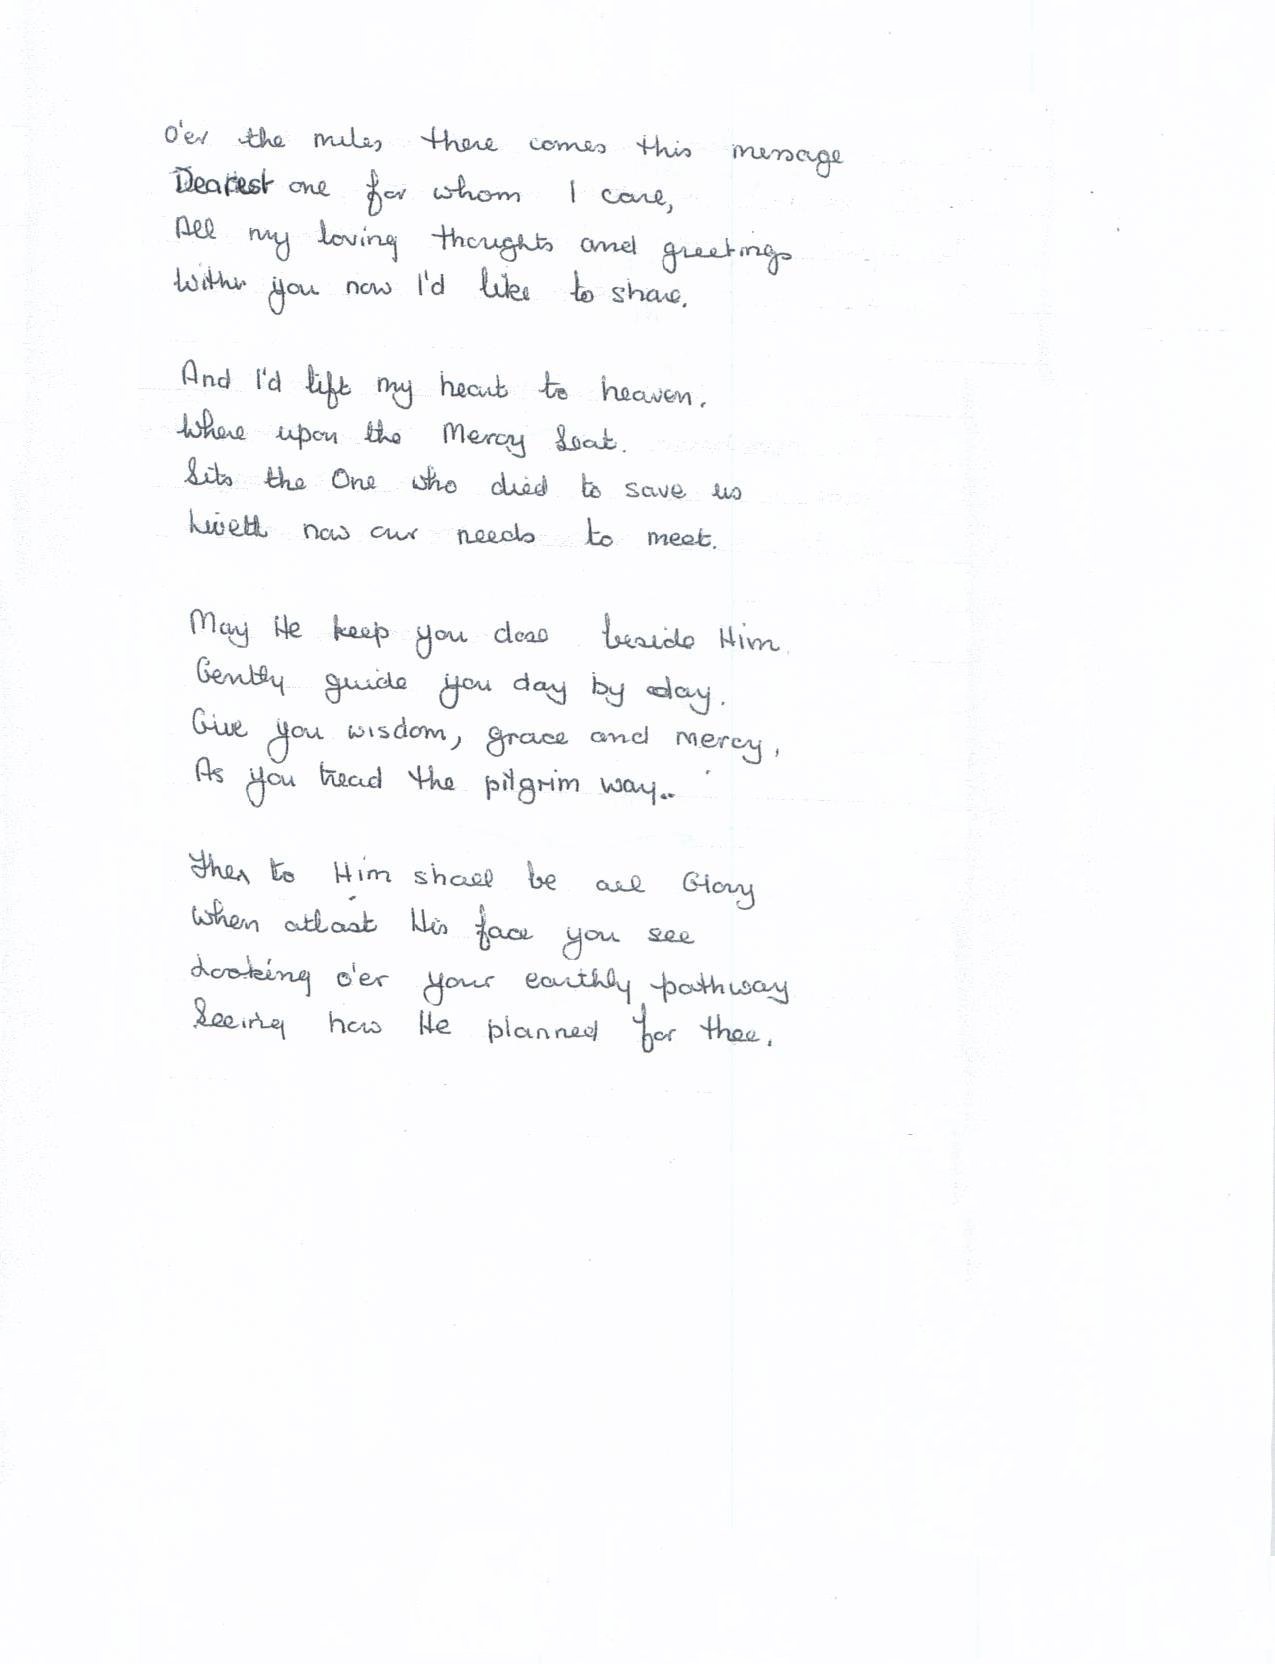 O'er the miles there comes this message
Dearest one for whom I care,
All my loving thoughts and greetings
With you now I'd like to share.
And I'd lift my heart to heaven.
Where upon the Mercy Seat.
Sits the One who died to save us
Liveth now our needs to meet.
May He keep you close beside Him.
Gently guide you day by day.
Give you wisdom, grace and mercy,
As you tread the pilgrim way..
Then to Him shall be all Glory
When atlast His face you see
Looking o'er your earthly pathway
Seeing how He planned for thee.